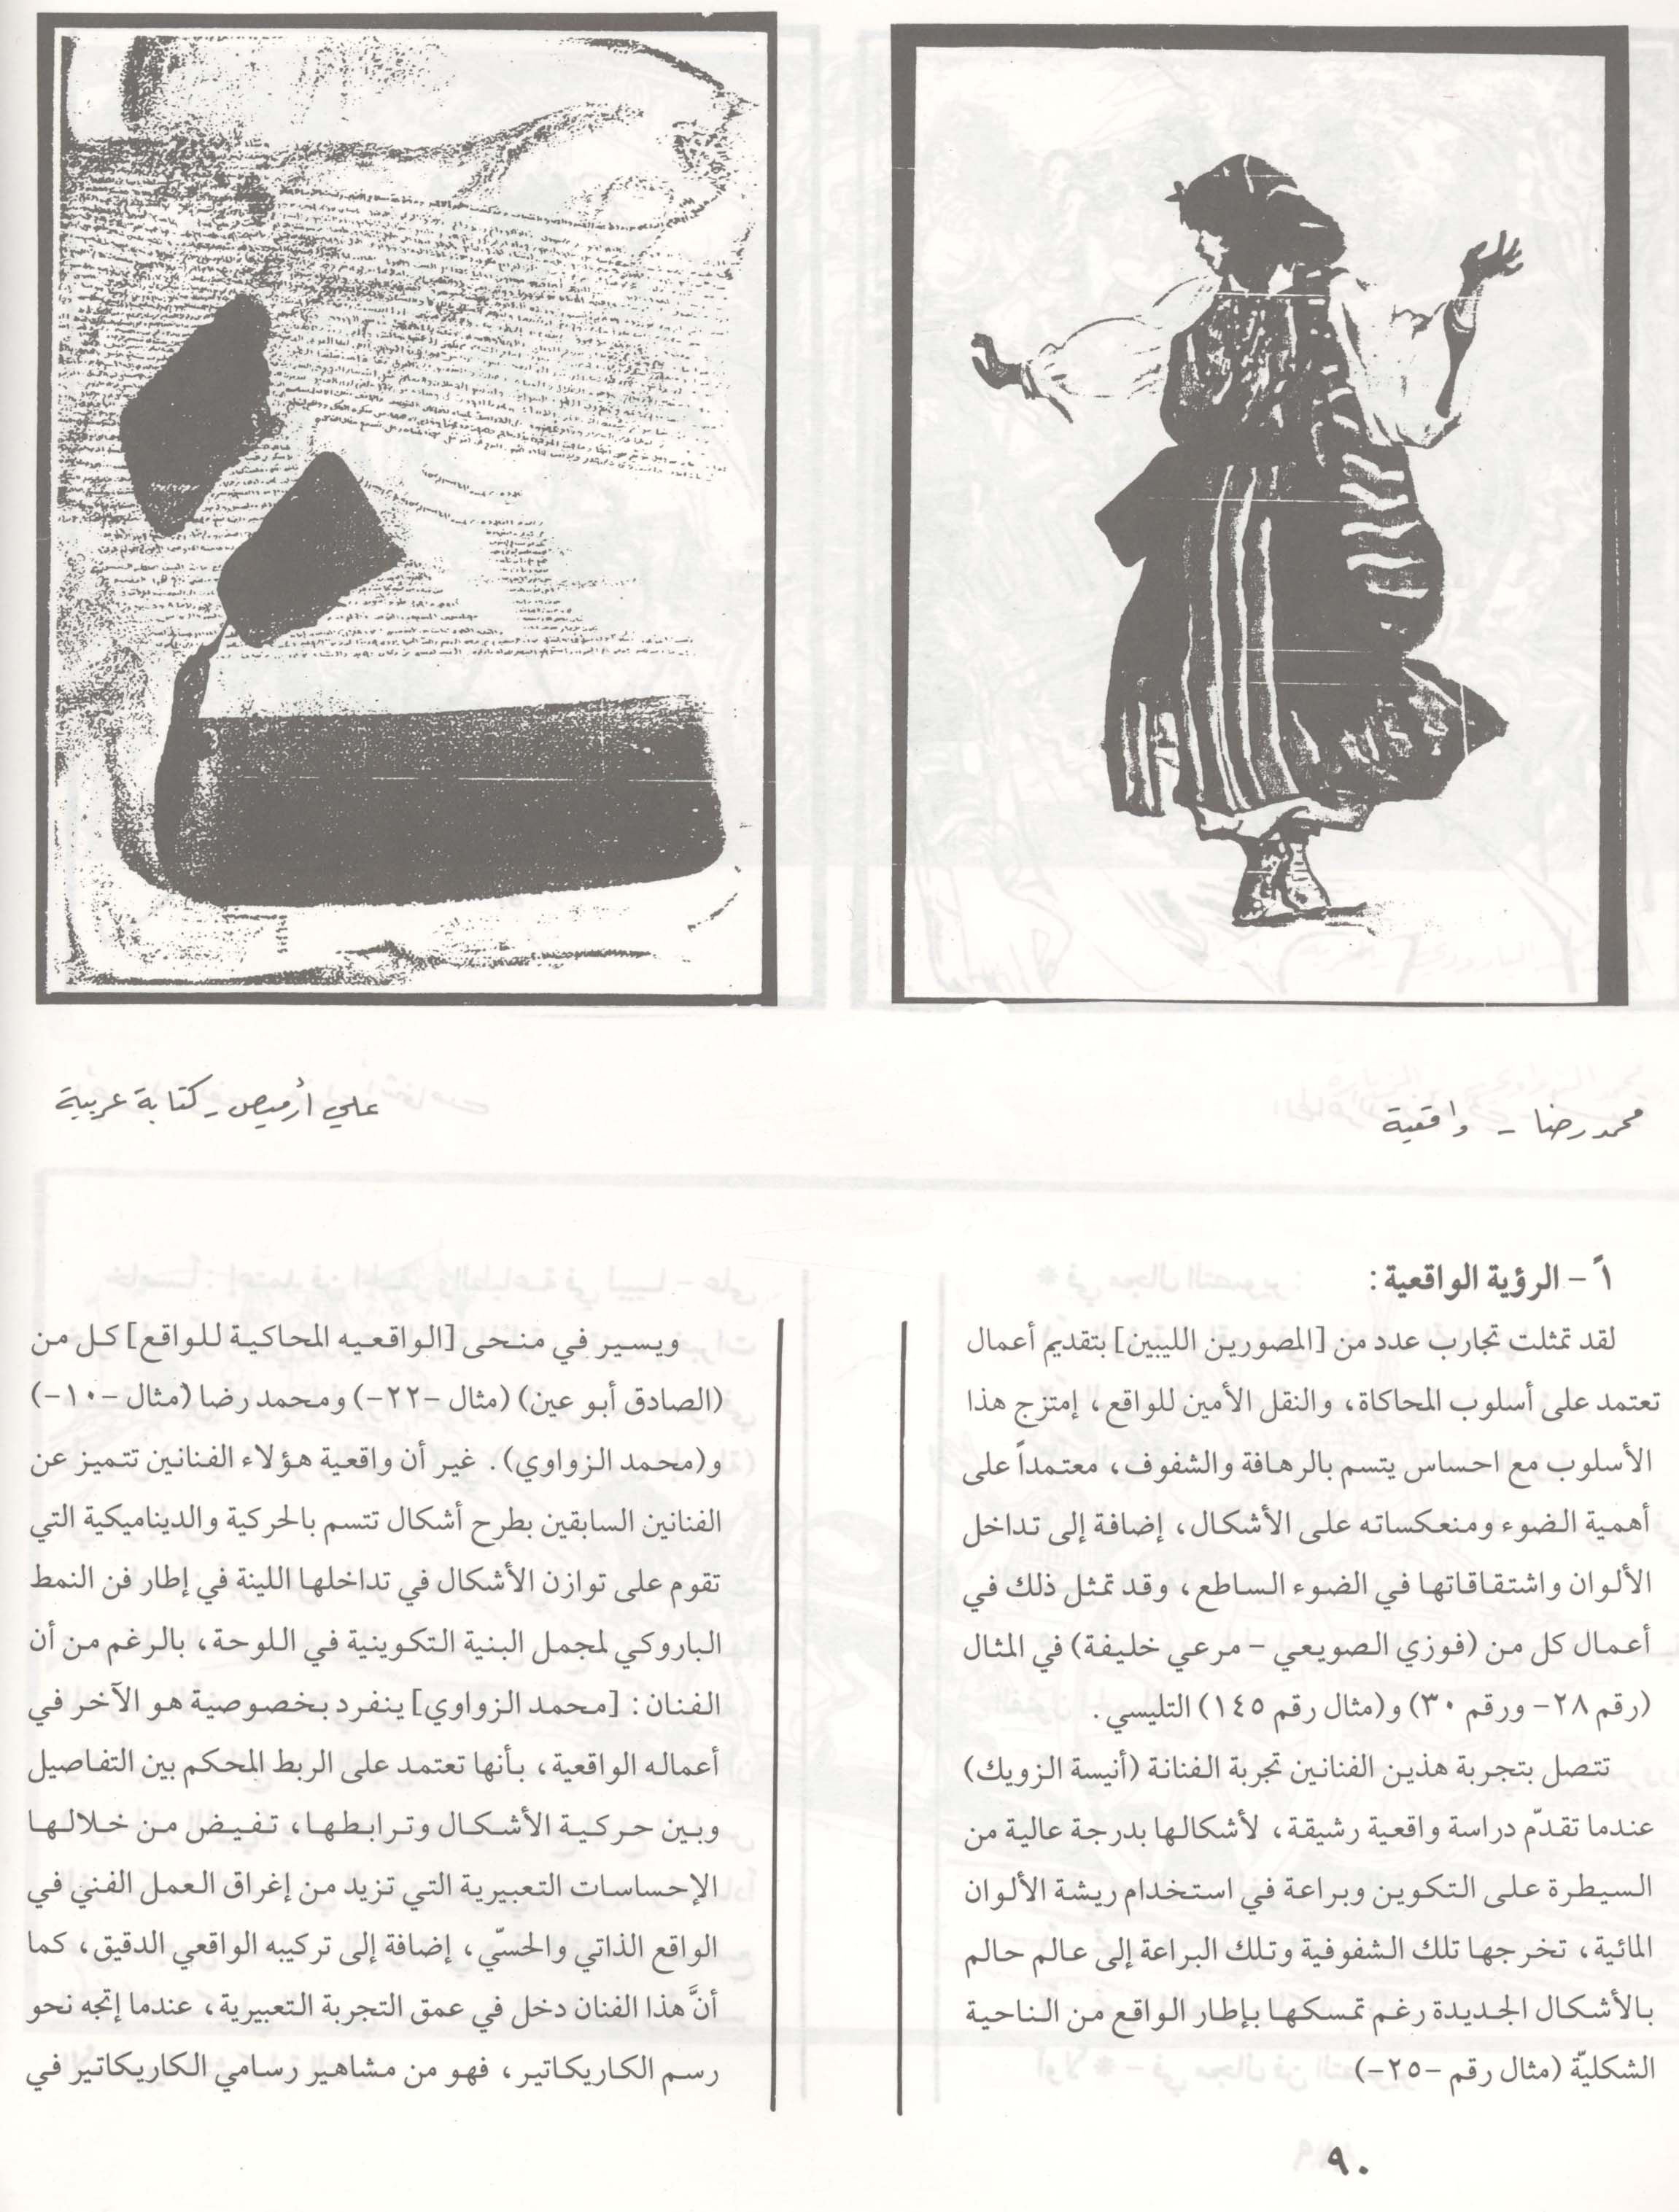 محمد رضا - واقعية
علي أرميص - كتابة عربية
١ً - الرؤية الواقعية :
لقد تمثلت تجارب عدد من [المصورين الليبين] بتقديم أعمال
تعتمد على أسلوب المحاكاة، والنقل الأمين للواقع، إمتزج هذا
الأسلوب مع احساس يتسم بالرهافة والشفوف، معتمداً على
أهمية الضوء ومنعكساته على الأشكال، إضافة إلى تداخل
الألوان واشتقاقاتها في الضوء الساطع، وقد تمثل ذلك في
أعمال كل من (فوزي الصويعي - مرعي خليفة) في المثال
(رقم ٢٨- ورقم ٣٠) و(مثال رقم ١٤٥) التليسي.
تتصل بتجربة هذين الفنانين تجربة الفنانة (أنيسة الزويك)
عندما تقدّم دراسة واقعية رشيقة، لأشكالها بدرجة عالية من
السيطرة على التكوين وبراعة في استخدام ريشة الألوان
المائية، تخرجها تلك الشفوفية وتلك البراعة إلى عالم حالم
بالأشكال الجديدة رغم تمسكها بإطار الواقع من الناحية
الشكليّة (مثال رقم -٢٥-)
ويسير في منحى [الواقعيه المحاكية للواقع] كل من
(الصادق أبو عين) (مثال -٢٢-) ومحمد رضا (مثال -١٠-)
و(محمد الزواوي). غير أن واقعية هؤلاء الفنانين تتميز عن
الفنانين السابقين بطرح أشكال تتسم بالحركية والديناميكية التي
تقوم على توازن الأشكال في تداخلها اللينة في إطار فن النمط
الباروكي لمجمل البنية التكوينية في اللوحة، بالرغم من أن
الفنان: [محمد الزواوي] ينفرد بخصوصية هو الآخر في
أعماله الواقعية، بأنها تعتمد على الربط المحكم بين التفاصيل
وبين حركية الأشكال وترابطها، تفيض من خلالها
الإحساسات التعبيرية التي تزيد من إغراق العمل الفني في
الواقع الذاتي والحسّي، إضافة إلى تركيبه الواقعي الدقيق، كما
أنَّ هذا الفنان دخل في عمق التجربة التعبيرية، عندما إتجه نحو
رسم الكاريكاتير، فهو من مشاهير رسامي الكاريكاتير في
٩٠